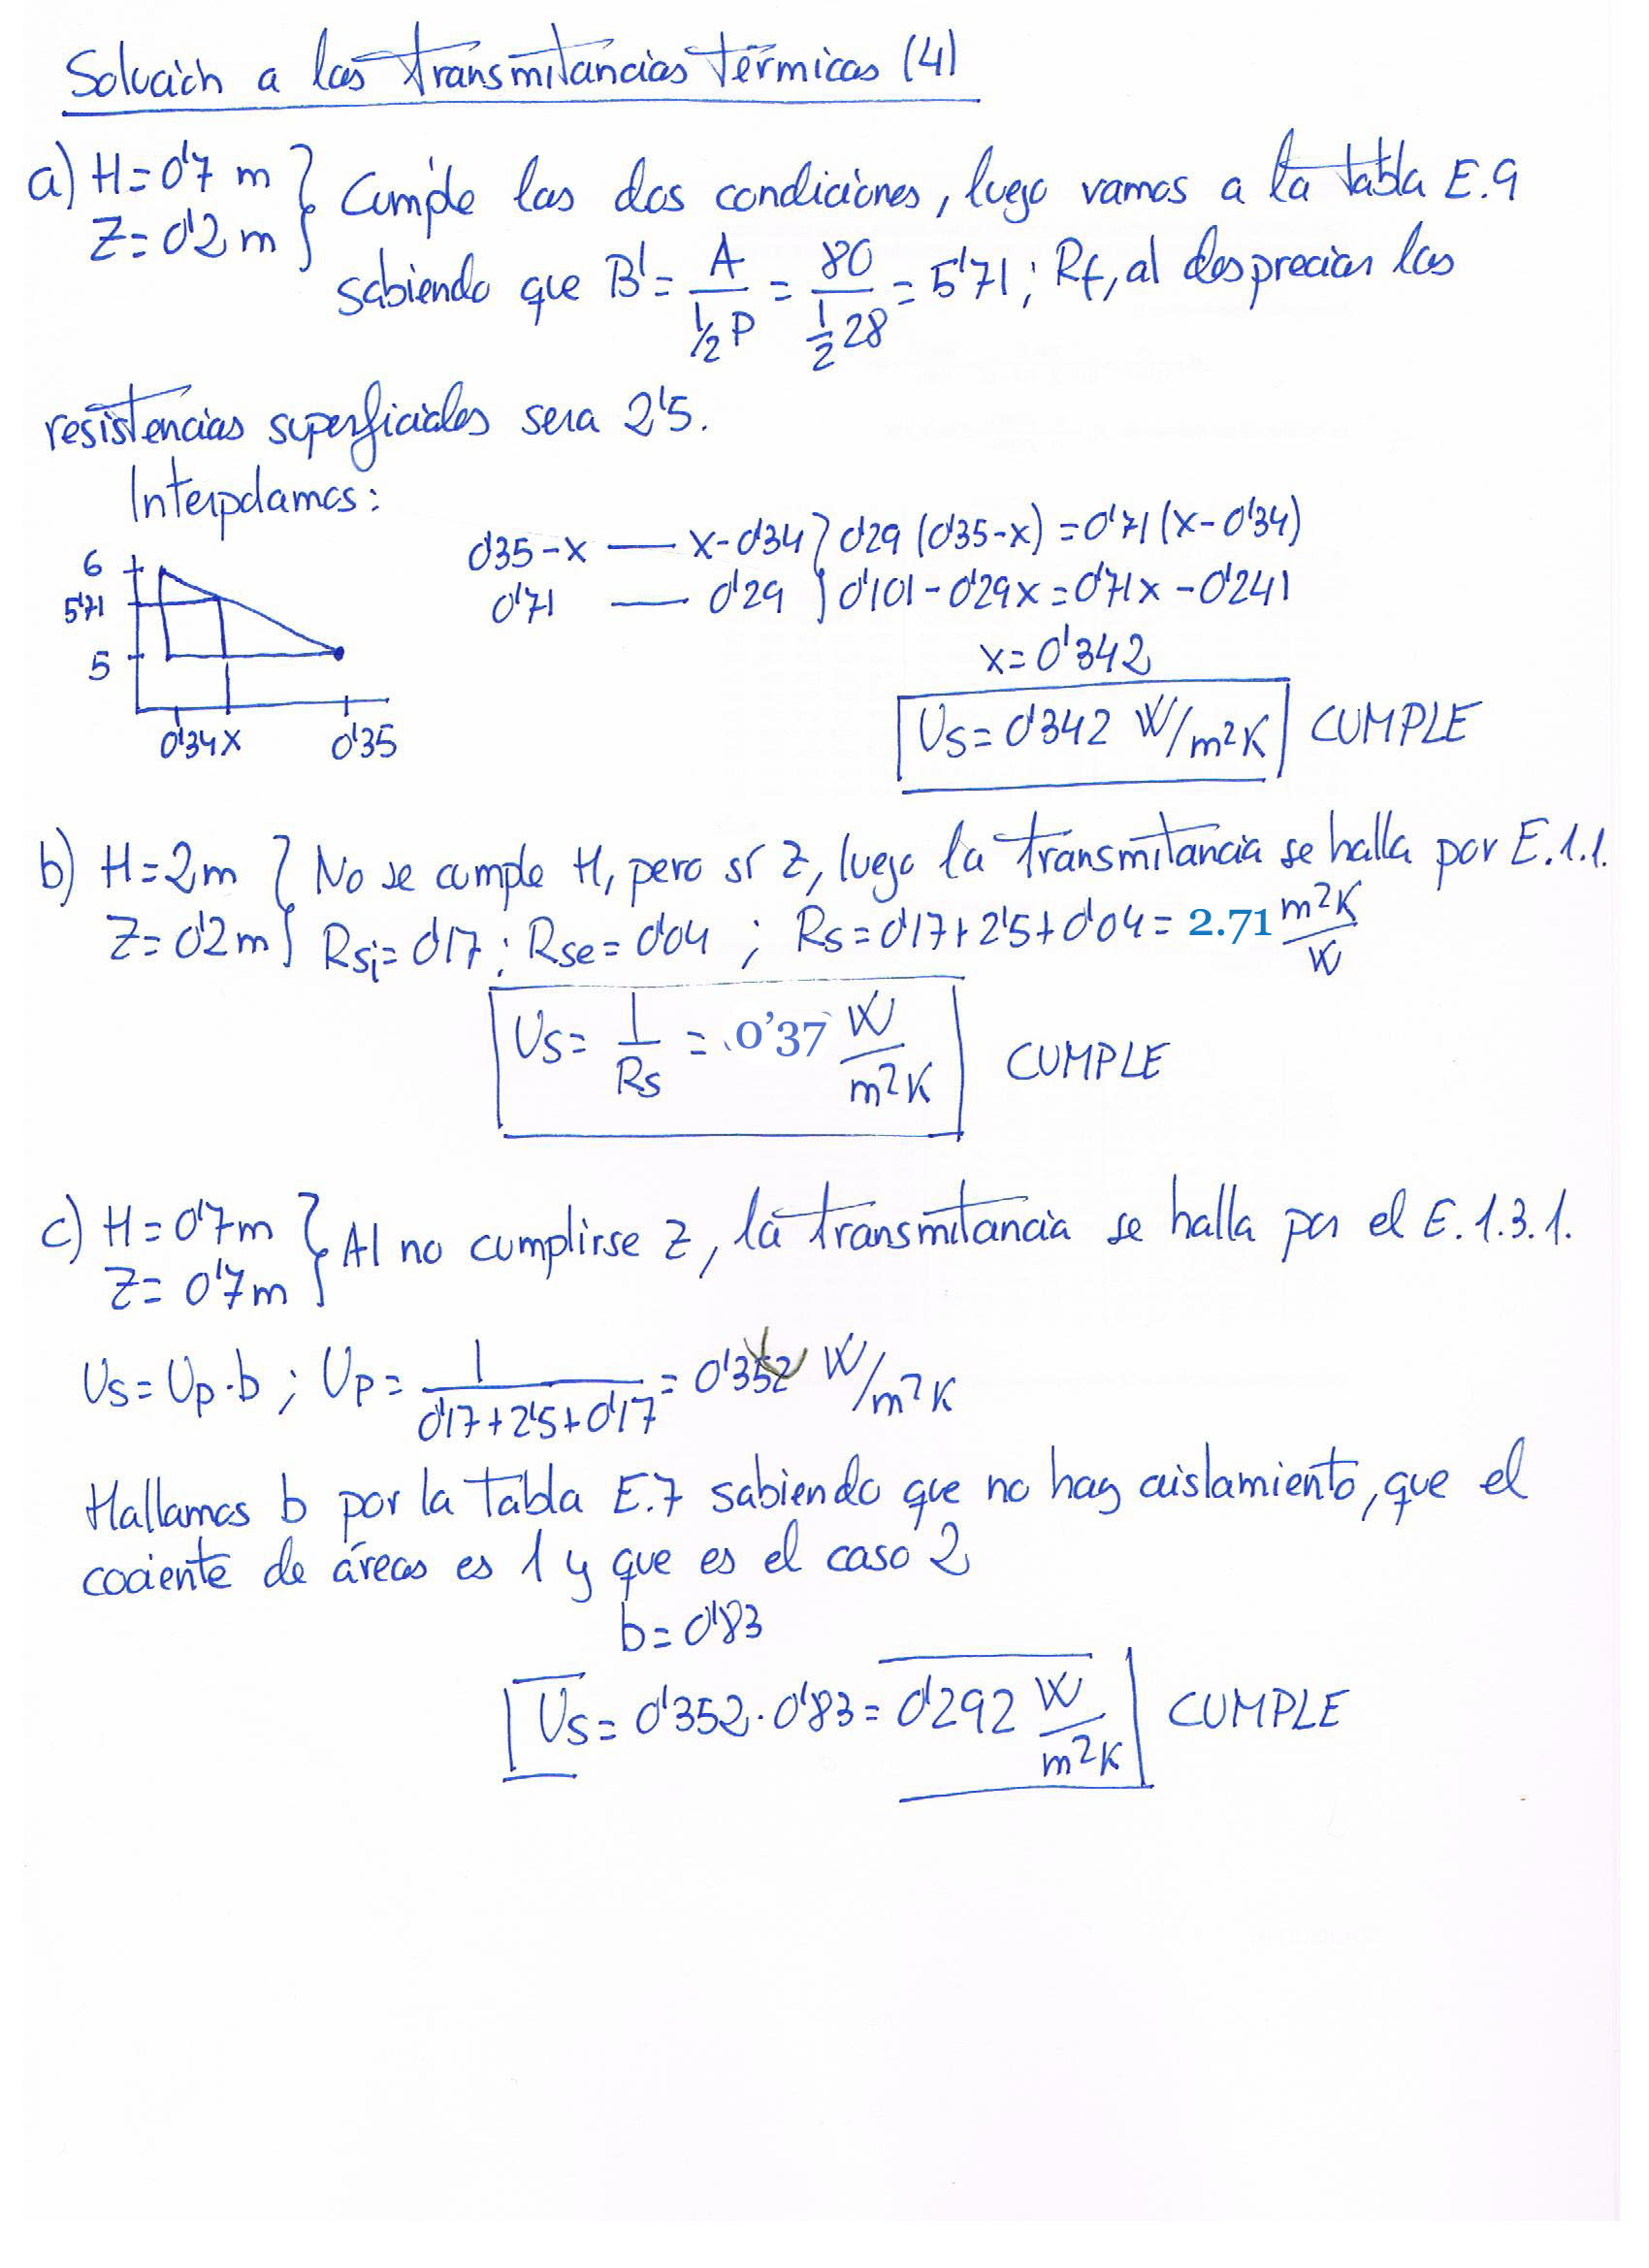 Solución a las transmitancias térmicas (4)
a) H=0'7 m
Z=0'2 m } Cumple las dos condiciones, luego vamos a la tabla E.9
sabiendo que B'= A / ½ P = 80 / ½ 28 = 5'71; Rf, al despreciar las
resistencias superficiales sera 2'5.
Interpolamos:
6
5'71
5
0'34 x 0'35
0'35-x — x-0'34 } 0'29 (0'35-x) = 0'71 (x-0'34)
0'71 — 0'29 } 0'101 - 0'29x = 0'71x - 0'241
x=0'342
Us=0'342 W/m²K CUMPLE
b) H=2m
Z=0'2m } No se cumple H, pero sí Z, luego la transmitancia se halla por E.1.1.
Rsi=0'17; Rse=0'04; Rs=0'17+2'5+0'04= 2.71 m²K/W
Us= 1/Rs = 0'37 W/m²K CUMPLE
c) H=0'7m
Z=0'7m } Al no cumplirse Z, la transmitancia se halla por el E.1.3.1.
Us=Up·b ; Up= 1 / 0'17+2'5+0'17 = 0'352 W/m²K
Hallamos b por la tabla E.7 sabiendo que no hay aislamiento, que el
cociente de áreas es 1 y que es el caso 2
b=0'83
Us=0'352·0'83=0'292 W/m²K CUMPLE